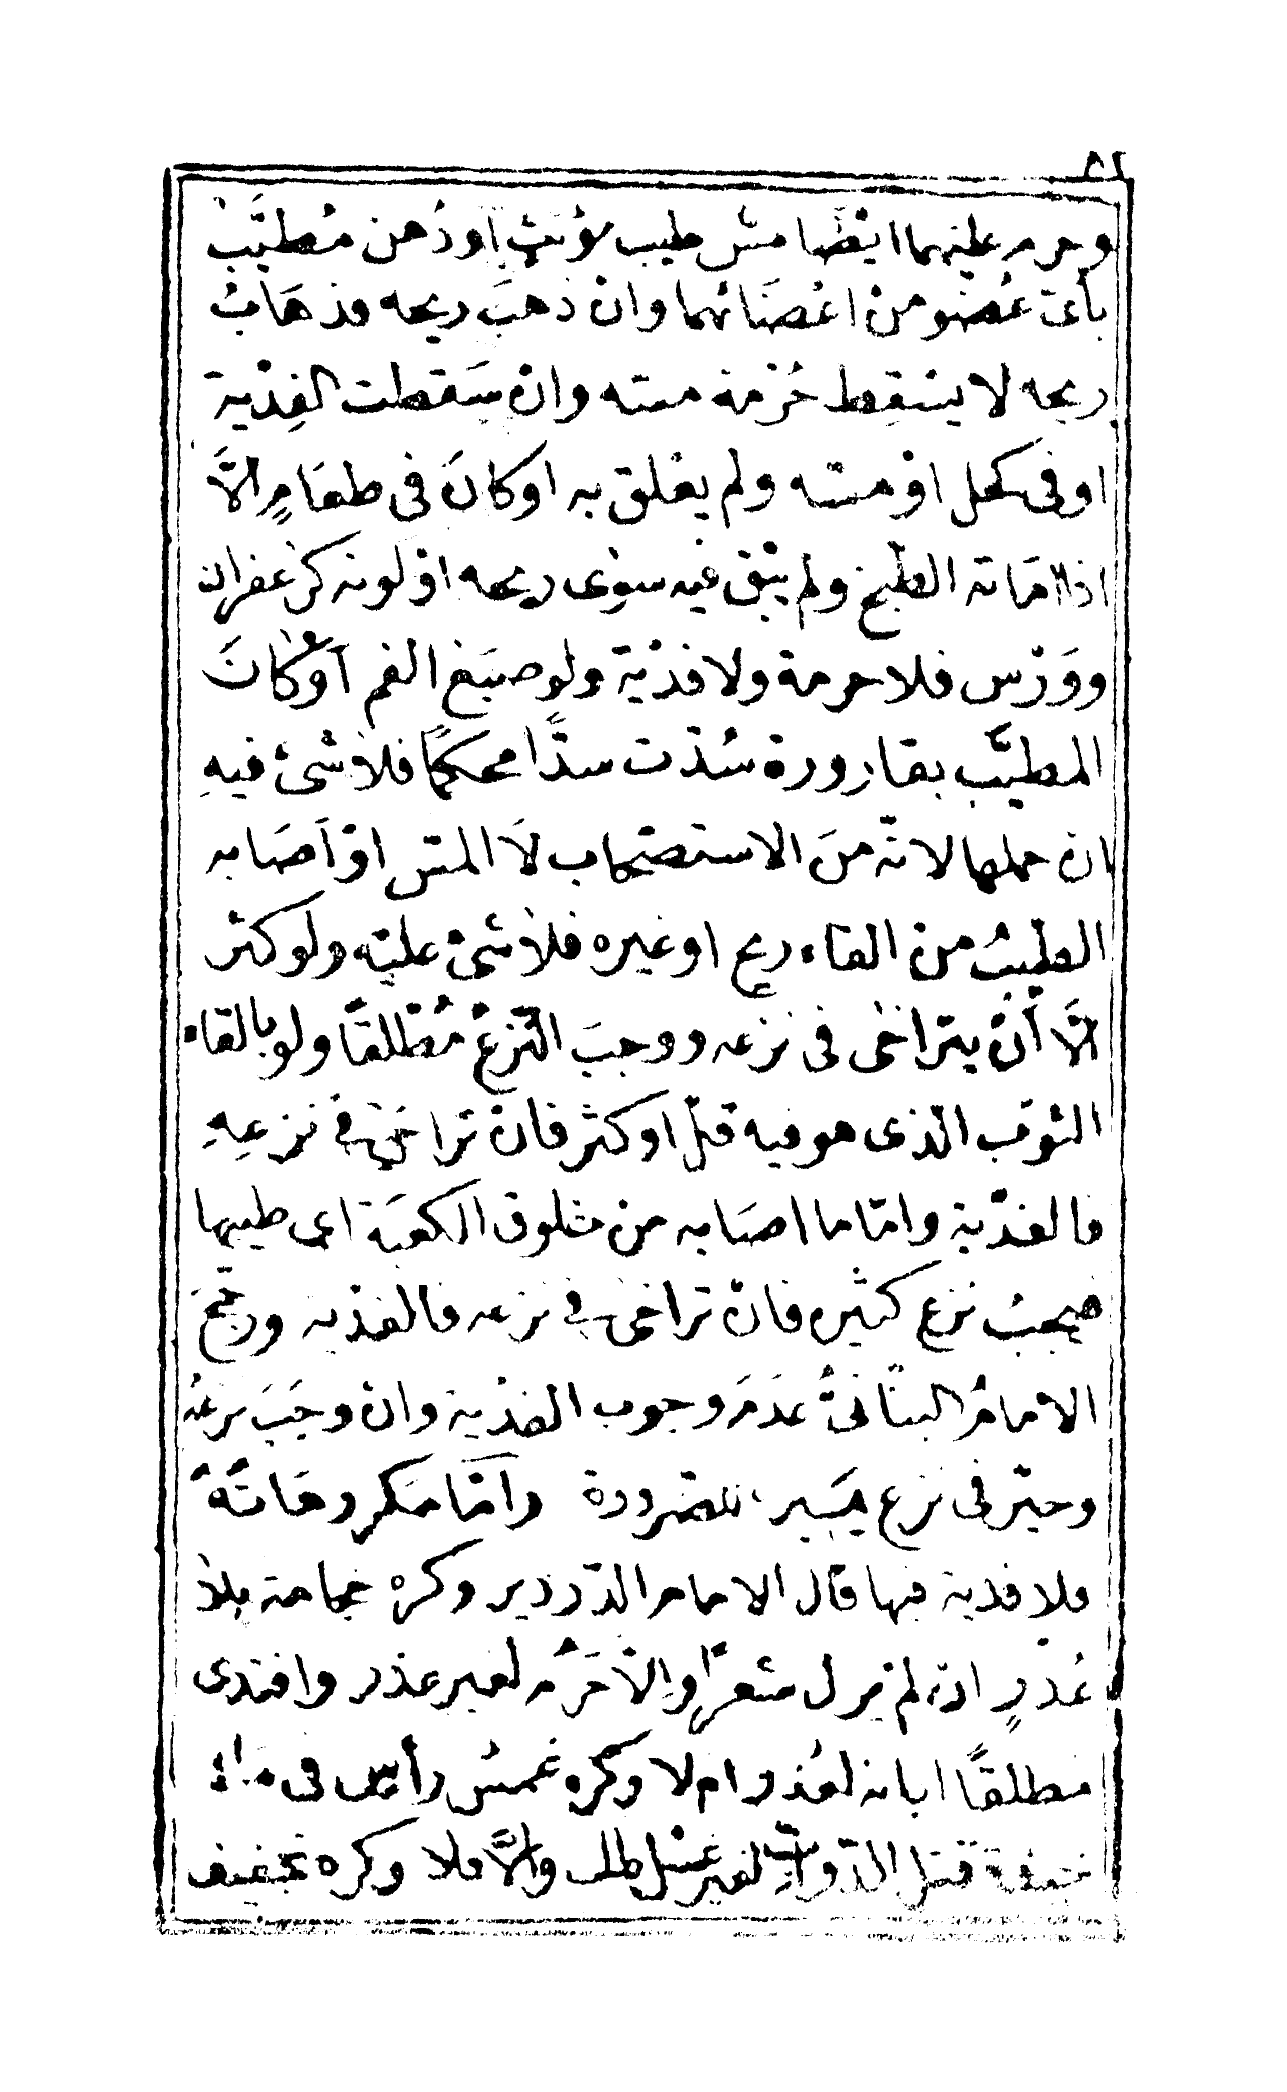 ٨٢
وحرم عليهما ايضا مس طيب مؤنث او دُهن مُطيَّب
بأىّ عُضو من اعْضَائهما وانْ ذهبَ ريحه وذهَابُ
ريحه لا يسْقِط حُرْمة مسّه وانْ سَقطت الفِدْية
او فى كحل اوْ مسّه ولم يعْلق به اوكانَ فى طعَامٍ الاَّ
اذا امَاته الطبْخ ولم يبْق فيه سوٰى ريحه اوْ لونه كزعْفران
ووَرْس فلا حرمة ولا فدْية ولو صبَغ الفم اَوْ كانَ
المطيَّب بقارورة سُدّت سدًّا محكمًا فلا شىْء فيهِ
ان حملها لانّه منَ الاستصْحاب لاَ المسّ اوْ اَصَابه
الطيبُ من القاء ريح او غيره فلا شىْء عليْه ولو كثر
الاَّ أنْ يتراخٰى فى نزعه ووجبَ النّزعُ مُطْلقًا ولو بالقاء
الثوْب الّذى هو فيه قلّ او كثر فانْ تراخَى فى نزعِهِ
فالفدْية وامّا ما اصَابه من خلوق الكعبَة اى طيبها
فيجبُ نزع كثيره فانْ تراخى فى نزعه فالفدْية ورجّحَ
الامامُ البنّانىُّ عَدَمَ وجوب الفدْية وانْ وجَبَ نزعُه
وخيّر فى نزع يَسير للضرورة وأمّا مَكروهَاتُهُ
فلا فدية فيها قال الامام الدّردير وكره حجامة بلا
عُذرٍ انْ لمْ يزل شعرًا وإلاّ حَرُم لغير عذر وافتدى
مطلقًا ابانه لعُذر ام لا وكُره غمسُ رأسٍ فى ماءٍ
خيفة قتل الدّوابِّ لغير غسْل طلب والاَّ فلا وكره تجفيف